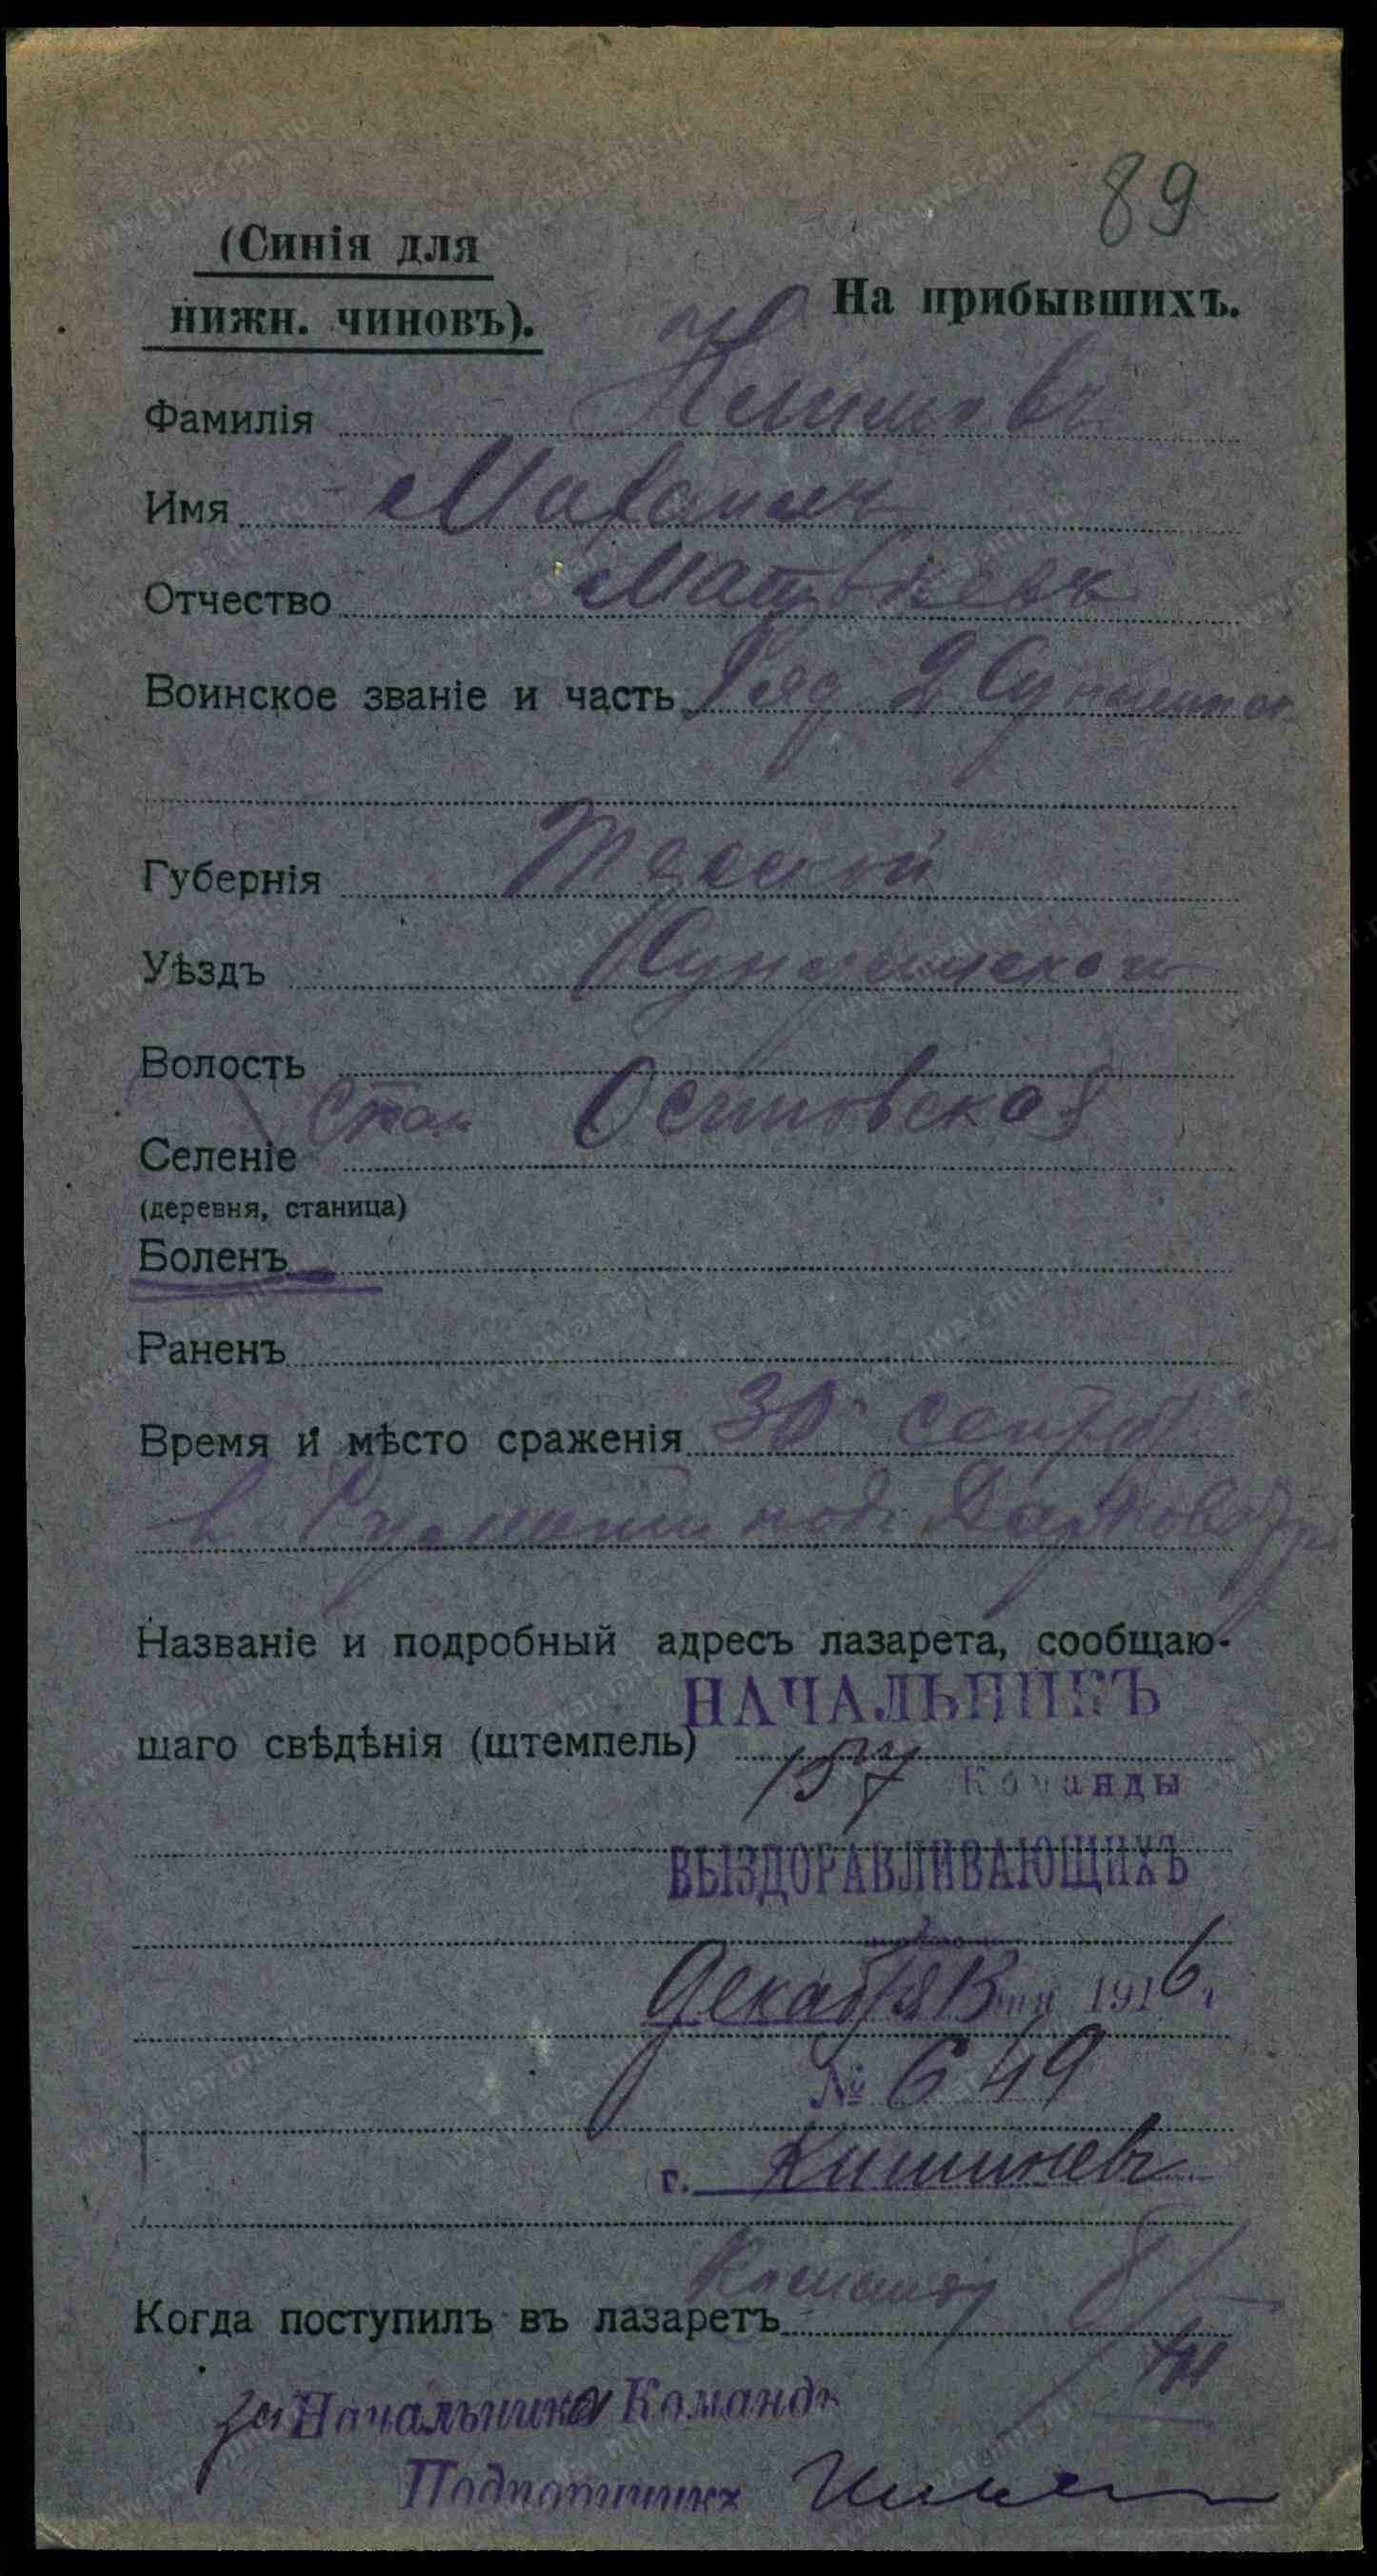 89
(Синія для
нижн. чиновъ).
На прибывшихъ.
Фамилія Климовъ
Имя Михаилъ
Отчество Матвѣевъ
Воинское званіе и часть Ряд 2
Губернія
Уѣздъ
Волость
Селеніе Стан. Осиповская
(деревня, станица)
Боленъ
Раненъ
Время и мѣсто сраженія 30 сентяб
в Румынии под
Названіе и подробный адресъ лазарета, сообщаю-
НАЧАЛЬНИКЪ
шаго свѣдѣнія (штемпель)
157 Команды
ВЫЗДОРАВЛИВАЮЩИХЪ
Декабря 13 дня 1916 г.
№ 649
г. Кишиневъ
Команду
Когда поступилъ въ лазаретъ 8/XII
за Начальника Команды
Подпоручикъ